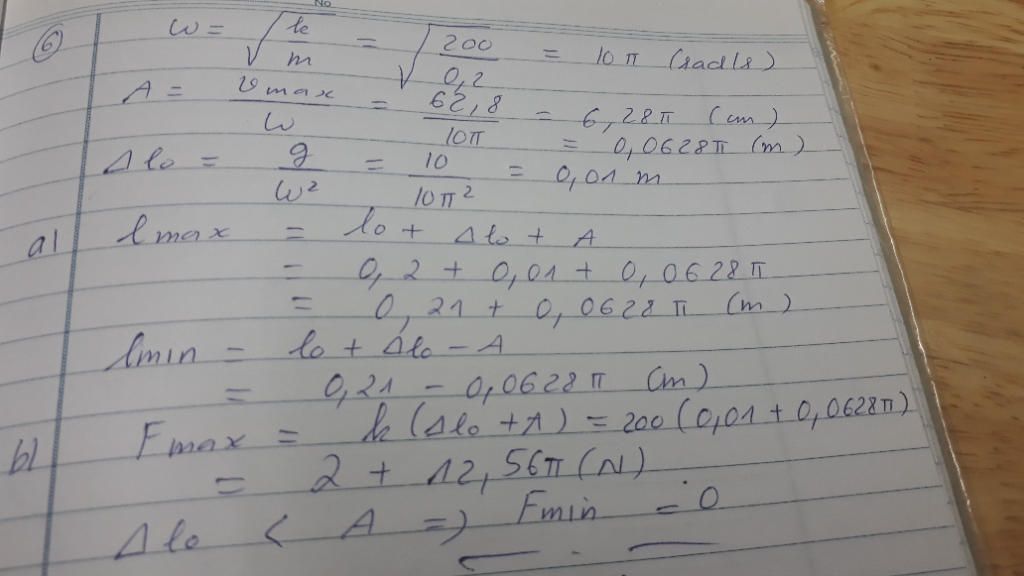 No
6) ω = √(k/m) = √(200/0,2) = 10π (rad/s)
A = vmax/ω = 62,8/10π = 6,28π (cm)
= 0,0628π (m)
Δl0 = g/ω² = 10/10π² = 0,01 m
a) lmax = l0 + Δl0 + A
= 0,2 + 0,01 + 0,0628π
= 0,21 + 0,0628π (m)
lmin = l0 + Δl0 - A
= 0,21 - 0,0628π (m)
b) Fmax = k (Δl0 + A) = 200 (0,01 + 0,0628π)
= 2 + 12,56π (N)
Δl0 < A => Fmin = 0